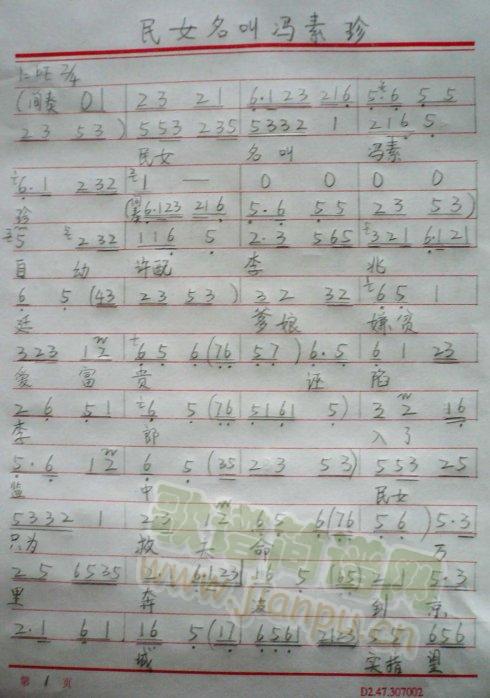 民女名叫冯素珍
1=bE 2/4
(间奏 0 1 | 2 3 2 1 | 6·1 2 3 2 1 6 | 5·6 5 5
2 3 5 3 ) | 5 5 3 2 3 5 | 5 3 3 2 1 | 2 1 6 5
民女 名叫 冯素
6·1 2 3 2 | 1 — | 0 0 | 0 0
珍 (间奏 6·1 2 3 2 1 6 | 5·6 5 5 | 2 3 5 3 )
5 2 3 2 | 1 1 6 5 | 2·3 5 6 5 | 3 2 1 6·1 2 1
自幼 许配 李 兆
6 5 (4 3 | 2 3 5 3 ) | 3 2 3 2 | 6 5 1
廷 爹娘 嫌贫
3 2 3 1 2 | 6 5 6 (7 6 | 5 7 ) 6·5 | 6 1 2 3
爱富 贵 诬 陷
2 6 5 1 | 6 5 (7 6 | 5 1 6 1 5 ) | 3 2 1 6
李 郎 入了
5·6 1 2 | 6 5 (3 5 | 2·3 5 3 ) | 5 5 3 2 5
监 中 民女
5 3 3 2 1 | 2 3 1 2 | 6 5 6 (7 6 | 5 6 ) 5·3
只为 救夫 命 万
2 5 6 5 3 5 | 2· 6·1 2 3 | 1 6 5 | 2 1 5·3
里 奔 波 到 京
2·1 6 1 | 1 6 5 (1 7 | 6 5 6 1 2 1 2 3 | 5 5 6 5 6
城 实指望
歌谱简谱网
www.jianpu.cn
第 1 页
D2.47.307002